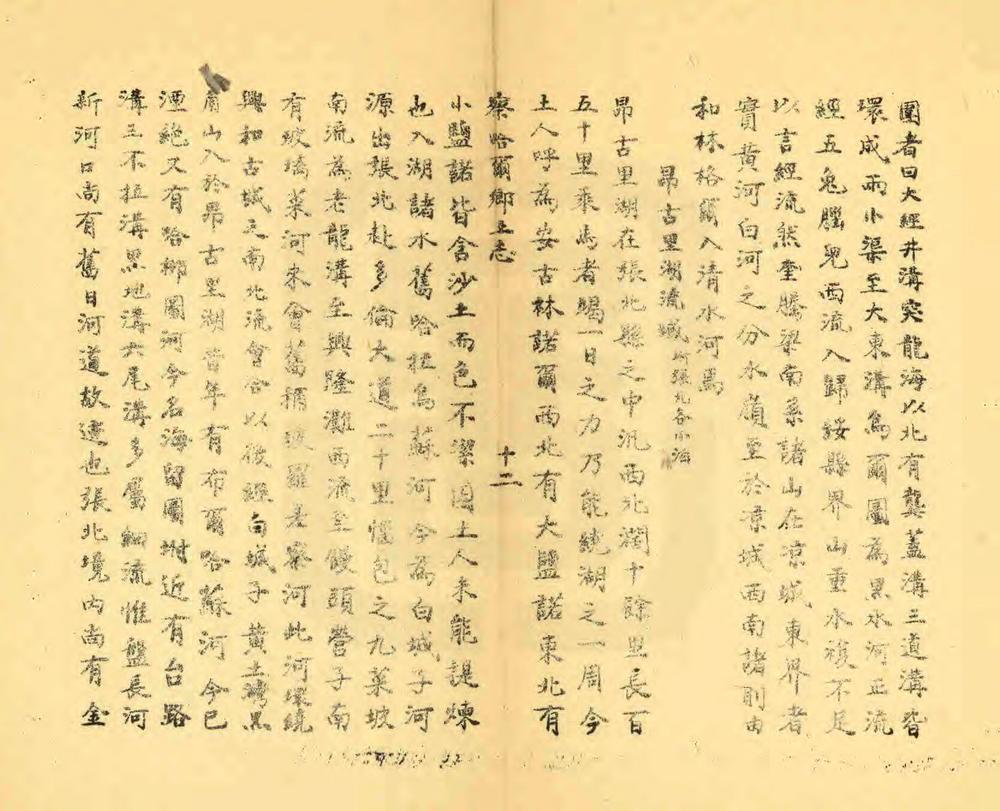 圍者曰大經井溝突龍海以北有龔蓋溝三道溝皆
環成兩小渠至大東溝為爾圖為黑水河正流
經五兔腦兒西流入歸綏縣界山重水複不足
以言經流然奎騰梁南系諸山在涼城東界者
實黃河白河之分水嶺至於涼城西南諸則由
和林格爾入清水河焉
昂古里湖流域附張九各小海
昂古里湖在張北縣之中汛西北濶十餘里長百
五十里乘馬者竭一日之力乃能繞湖之一周今
土人呼為安古林諾爾西北有大盬諾東北有
察哈爾鄉土志
十二
小盬諾皆含沙土而色不潔因土人未能提煉
也入湖諸水舊哈拉烏蘇河今為白城子河
源出張北赴多倫大道二十里惱包之九菜坡
南流為老龍溝至興隆灘西流至饅頭營子南
有玻璃菜河來會舊稱波羅差察河此河環繞
興和古城之南北流會合以後經白城子黃土灣黑
山入於昂古里湖昔年有布爾哈蘇河今已
湮絕又有哈柳圖河今名海留圖坿近有台路
溝三不拉溝黑地溝六尾溝多屬細流惟盤長河
新河口尚有舊日河道故迹也張北境內尚有金